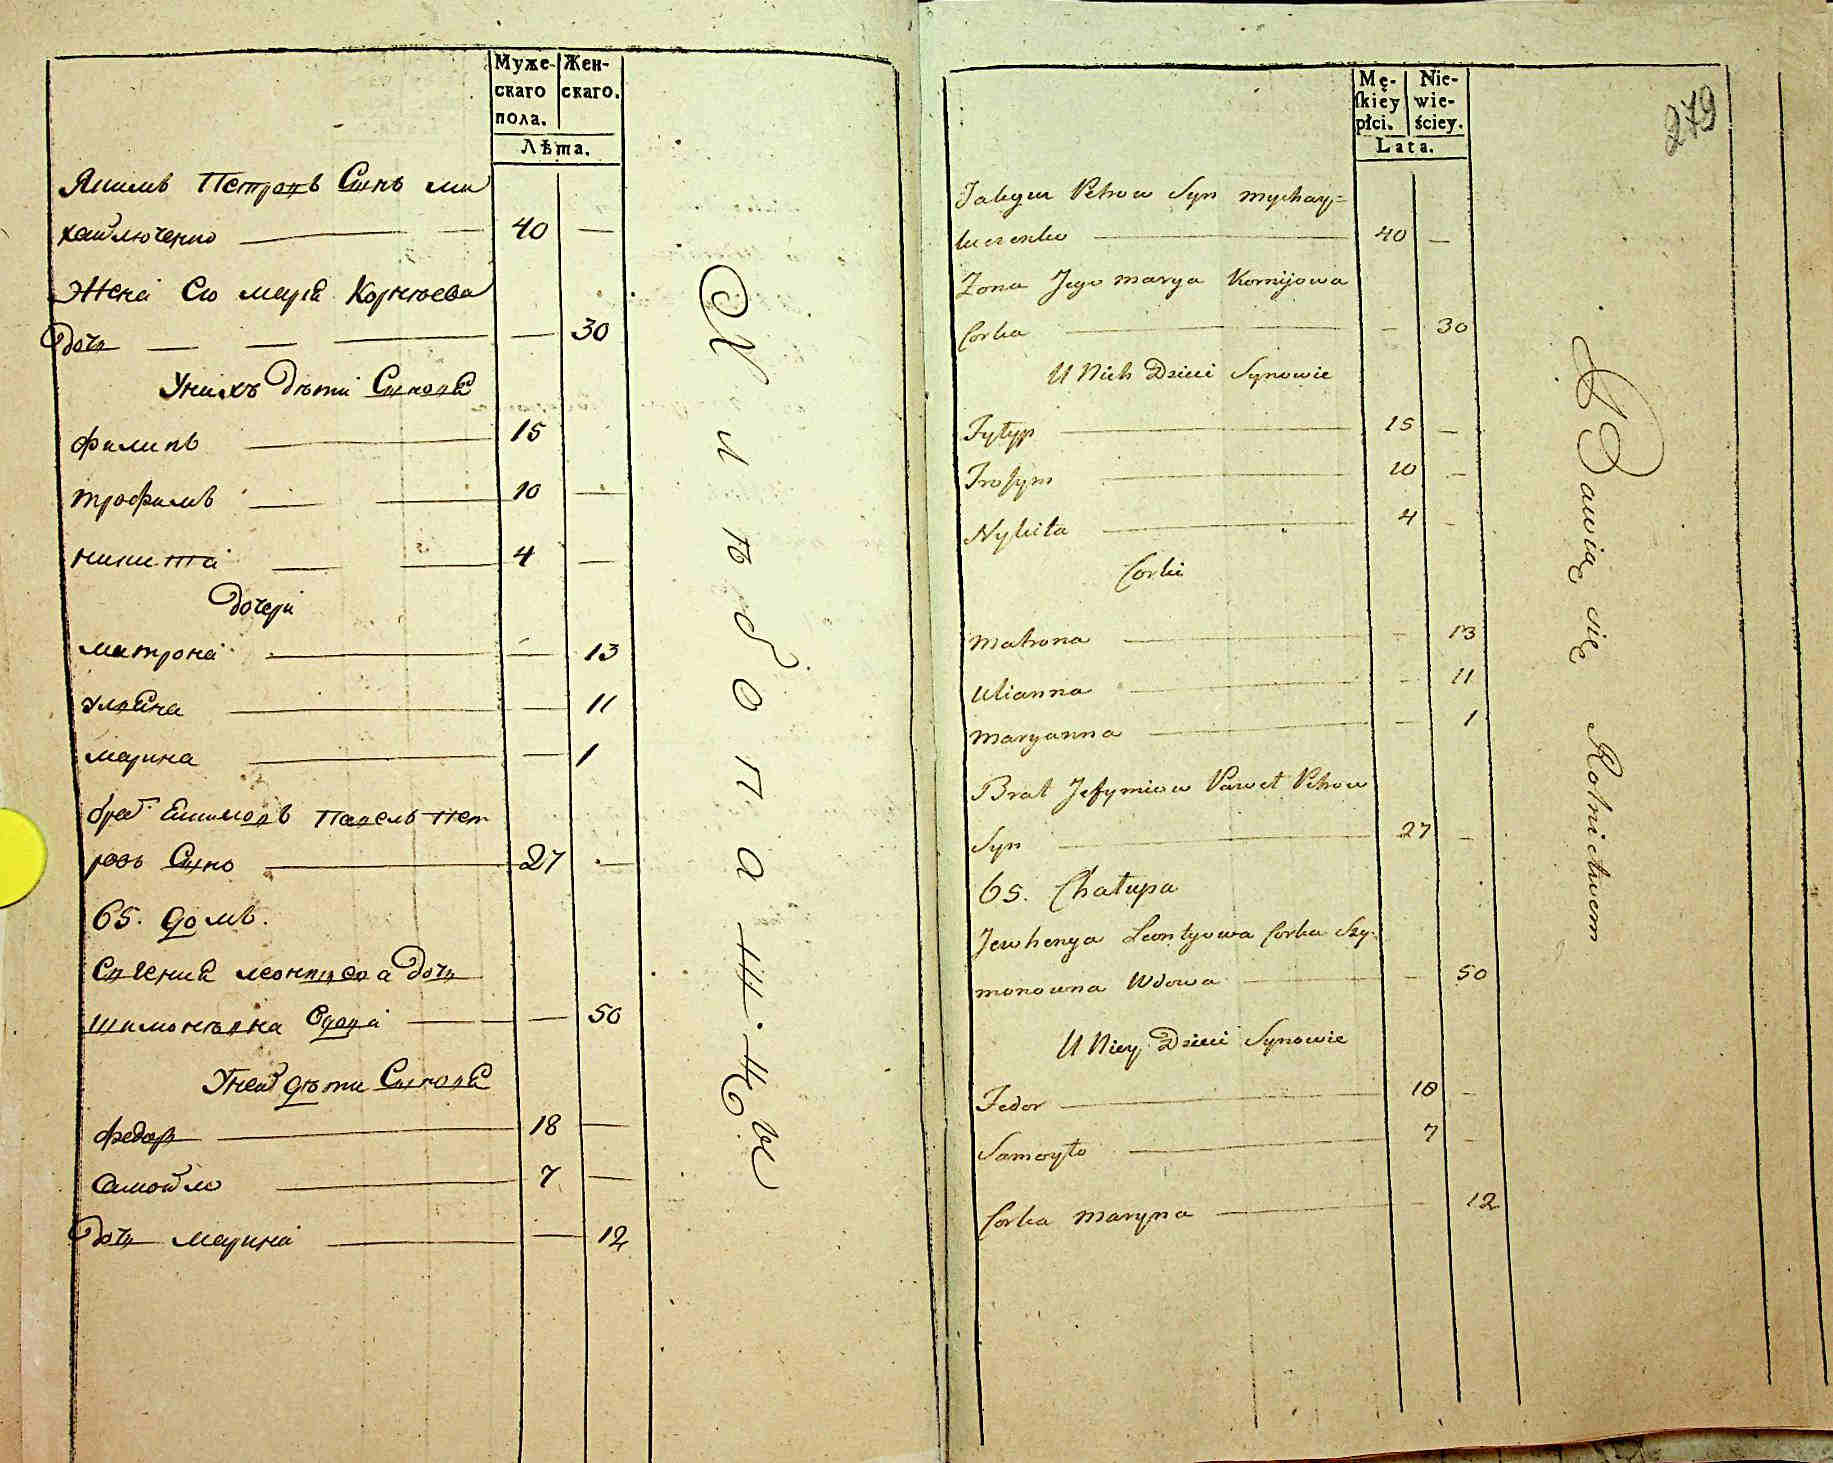 Муже-
скаго
пола.
Жен-
скаго.
Лѣта.
Якимъ Петровъ Сынъ ми
хайлюченко 40 —
Жена Его Марiя Корнѣева
Дочь — 30
У нихъ Дѣти Сыновя
Филипъ 15
Трофимъ 10 —
Никита 4 —
Дочери
Матрона — 13
Уляна — 11
Марина — 1
братъ Павелъ Пет
ровъ Сынъ 27 —
65. Домъ.
Леонтиева Дочь
Шимоновна Вдова — 50
У ней Дѣти Сыновя
Федоръ 18 —
Самойло 7 —
Дочь Марина — 12
Хлѣбопашцы
Mę-
ſkiéy
płci.
Nie-
wie-
ściey.
Lata.
279
Jakym Petrow Syn Mychay=
luczenko 40 —
Żona Jego Marya Kornijowa
Corka — 30
U Nich Dzieci Synowie
Fyłyp 15 —
Trofym 10 —
Nykita 4 —
Corki
Matrona — 13
Ulianna — 11
Maryanna — 1
Brat Jefymiow Paweł Petrow
Syn 27 —
65. Chałupa
Jewhenya Leontyowa Corka Szy-
monowna Wdowa — 50
U Niey Dzieci Synowie
Fedor 18 —
Samoyło 7 —
Corka Maryna — 12
Bawią się Rolnictwem